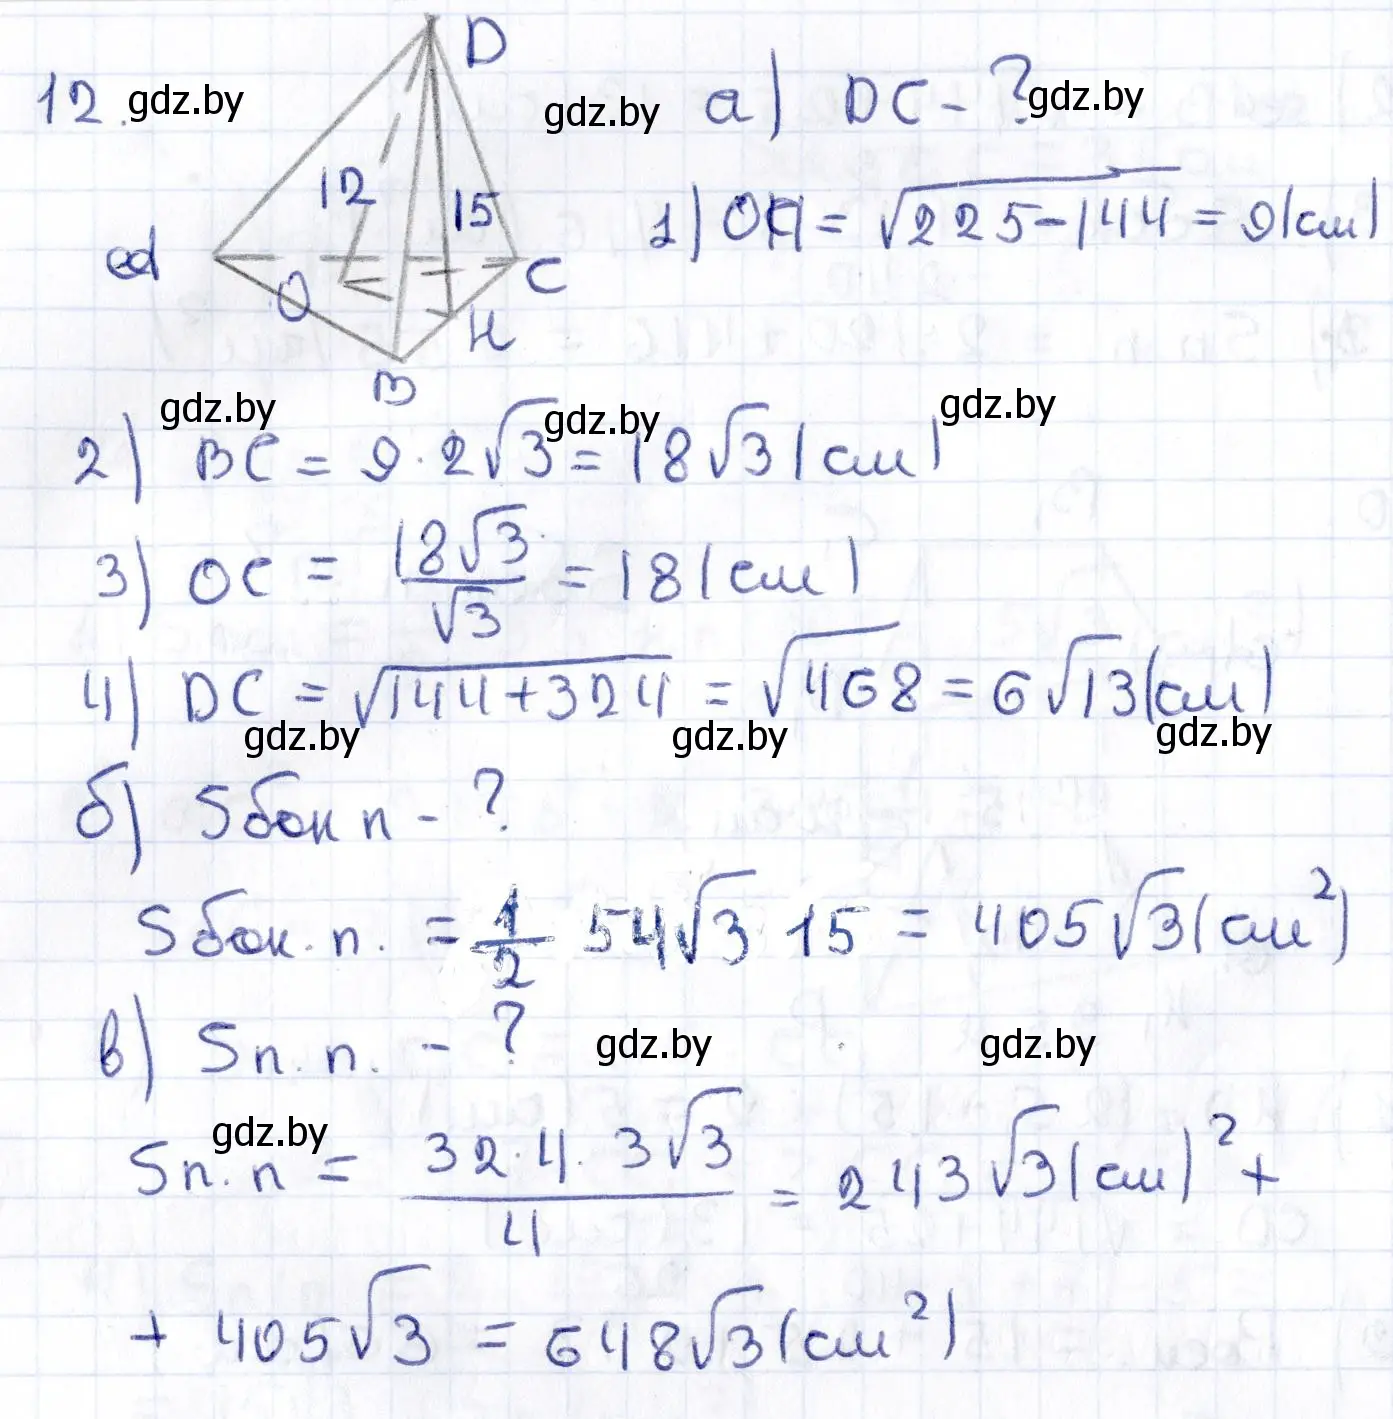 12. gdz.by D gdz.by а) DC - ? gdz.by
12 15
1) OH = √225-144 = 9(см)
O C
H
B
gdz.by gdz.by gdz.by
2) BC = 9·2√3 = 18√3(см)
3) OC = 18√3/√3 = 18(см)
4) DC = √144+324 = √468 = 6√13(см)
gdz.by gdz.by gdz.by
б) Sбок п - ?
Sбок.п. = 1/2 54√3 15 = 405√3(см²)
в) Sп.п. - ?
gdz.by gdz.by
gdz.by
Sп.п = 32·4·3√3/4 = 243√3(см)² +
+ 405√3 = 648√3(см²)